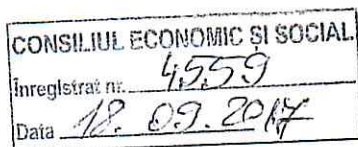 CONSILIUL ECONOMIC ȘI SOCIAL
Înregistrat nr. 4559
Data 18. 09. 2017